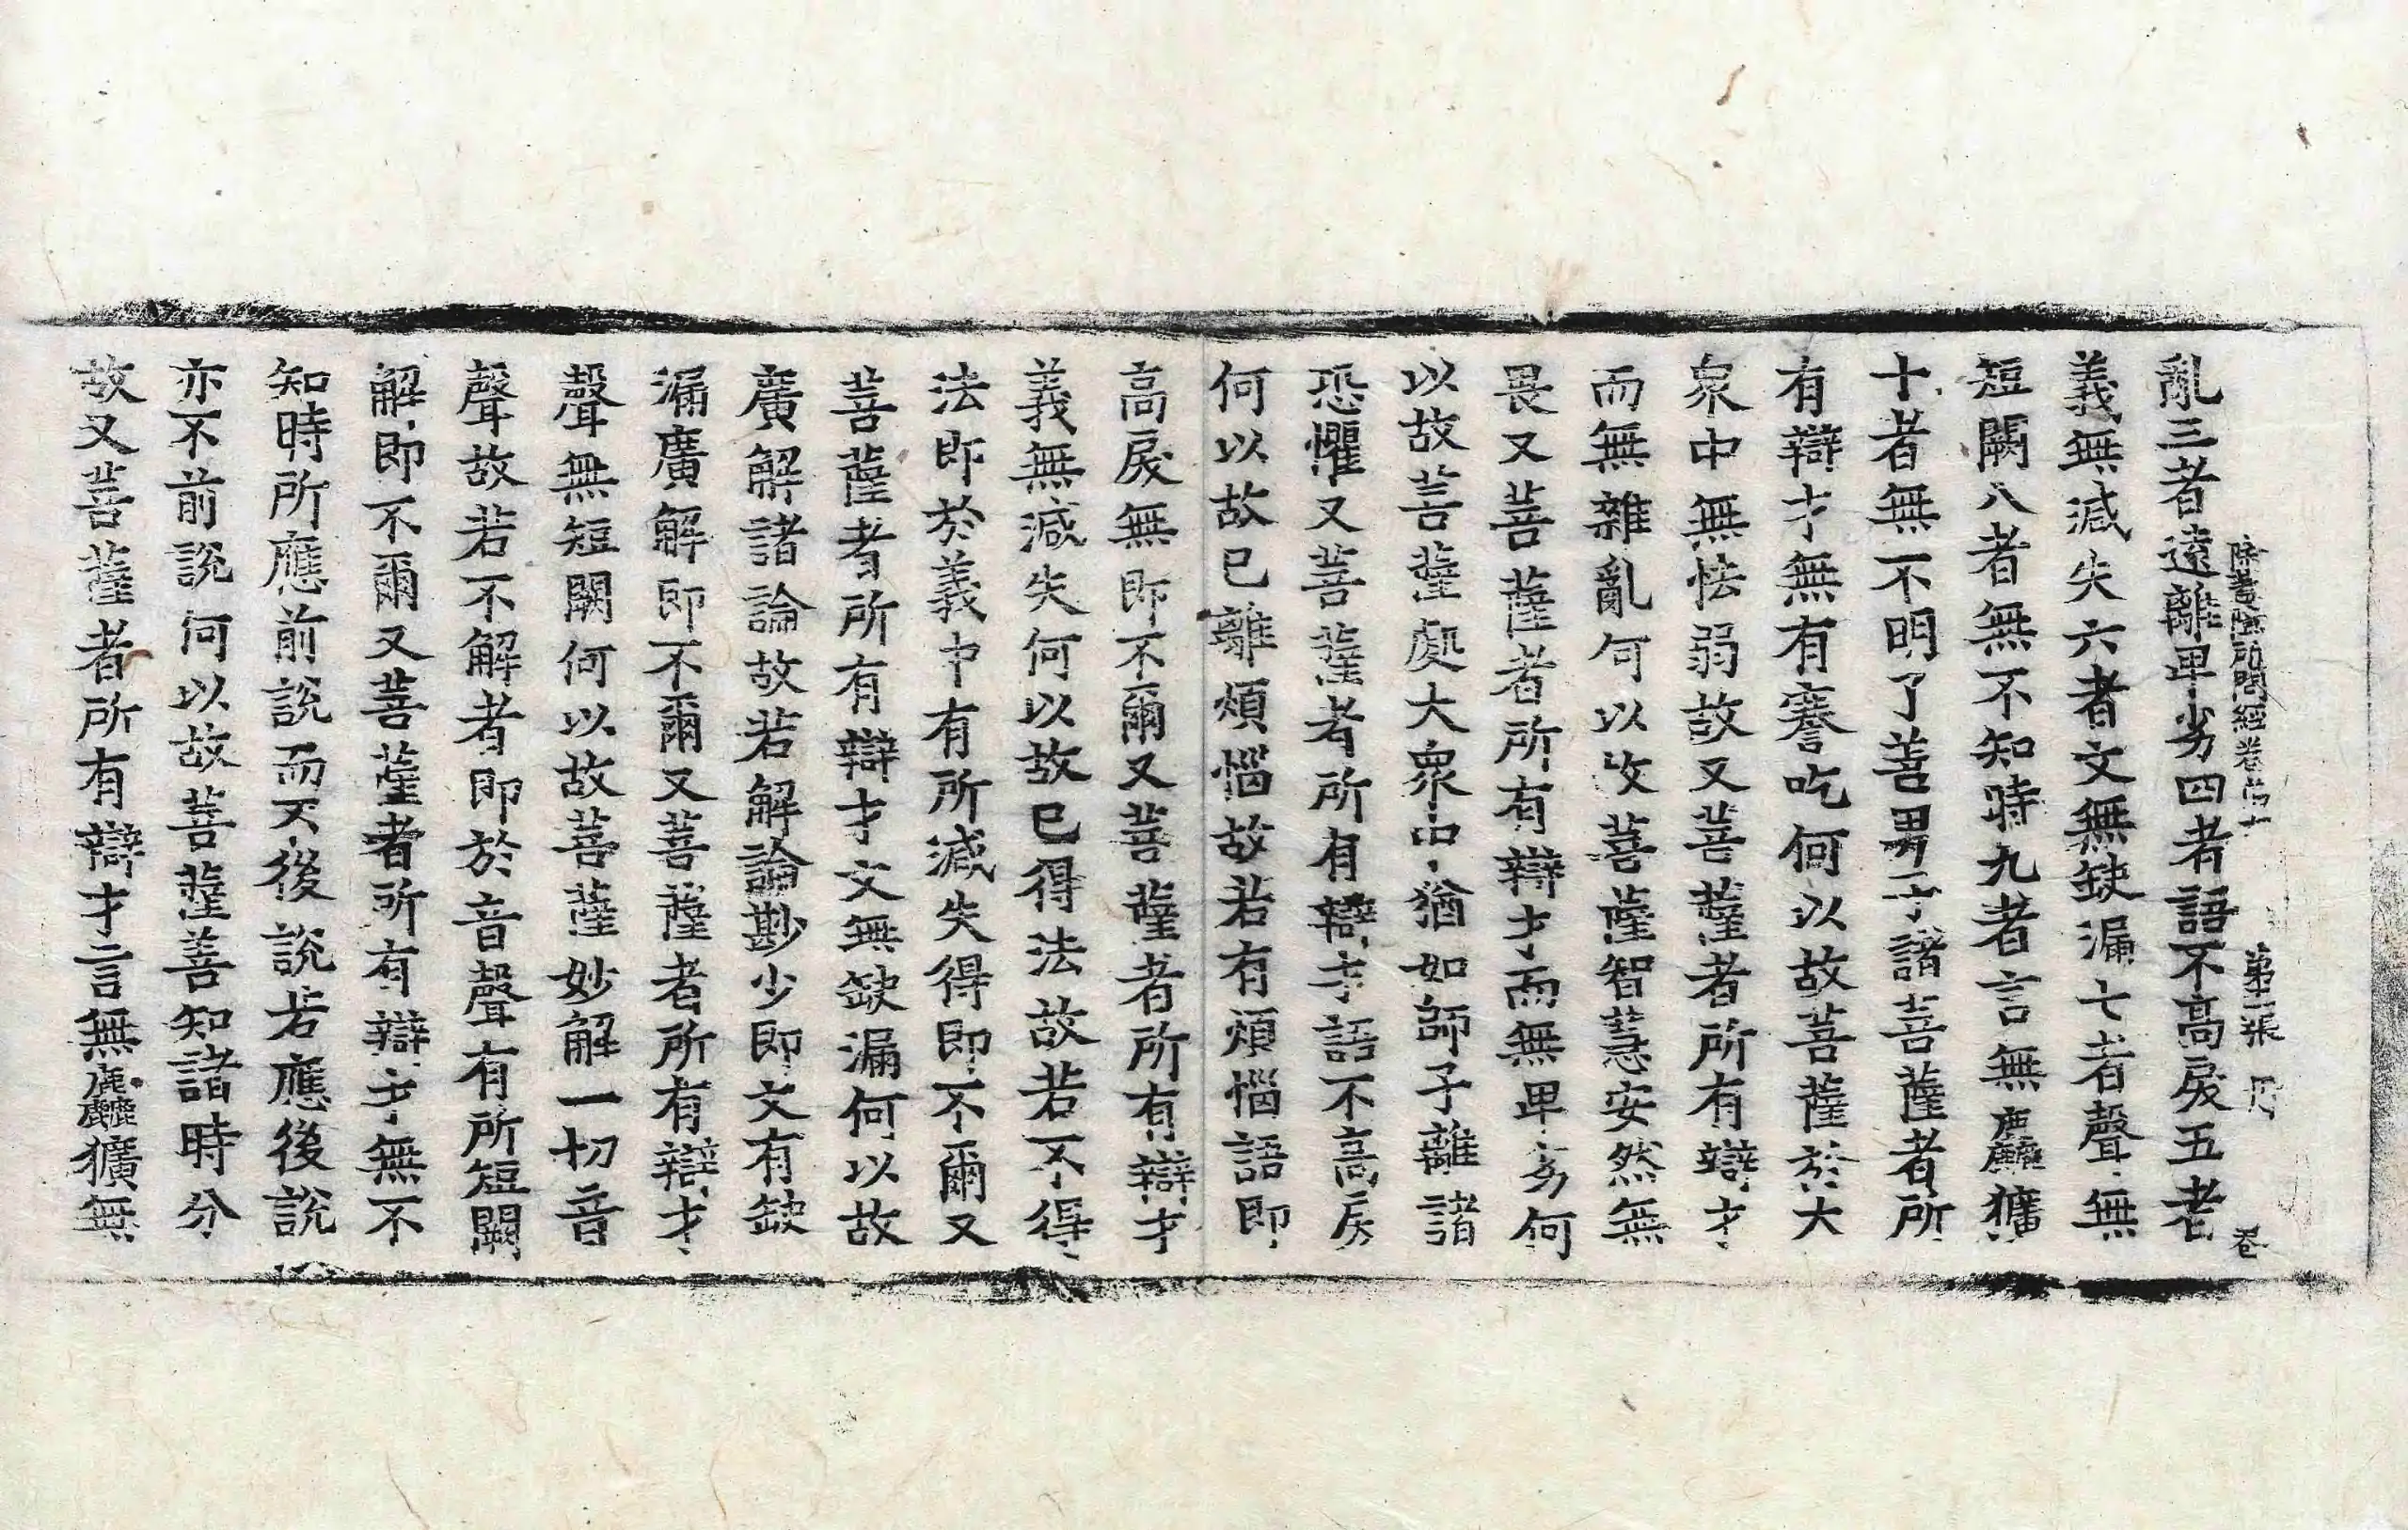 除蓋障所問經卷第十 第二張 卷
亂三者遠離卑劣四者語不高戾五者
義無減失六者文無缺漏七者聲無
短闕八者無不知時九者言無麤獷
十者無不明了善男子諸菩薩者所
有辯才無有謇吃何以故菩薩於大
衆中無怯弱故又菩薩者所有辯才
而無雜亂何以攻菩薩智慧安然無
畏又菩薩者所有辯才而無卑劣何
以故菩薩處大衆中猶如師子離諸
恐懼又菩薩者所有辯才語不高戾
何以故已離煩惱故若有煩惱語即
高戾無即不爾又菩薩者所有辯才
義無減失何以故已得法故若不得
法即於義中有所減失得即不爾又
菩薩者所有辯才文無缺漏何以故
廣解諸論故若解論尠少即文有缺
漏廣解即不爾又菩薩者所有辯才
聲無短闕何以故菩薩妙解一切音
聲故若不解者即於音聲有所短闕
解即不爾又菩薩者所有辯才無不
知時所應前說而不後說若應後說
亦不前說何以故菩薩善知諸時分
故又菩薩者所有辯才言無麤獷無